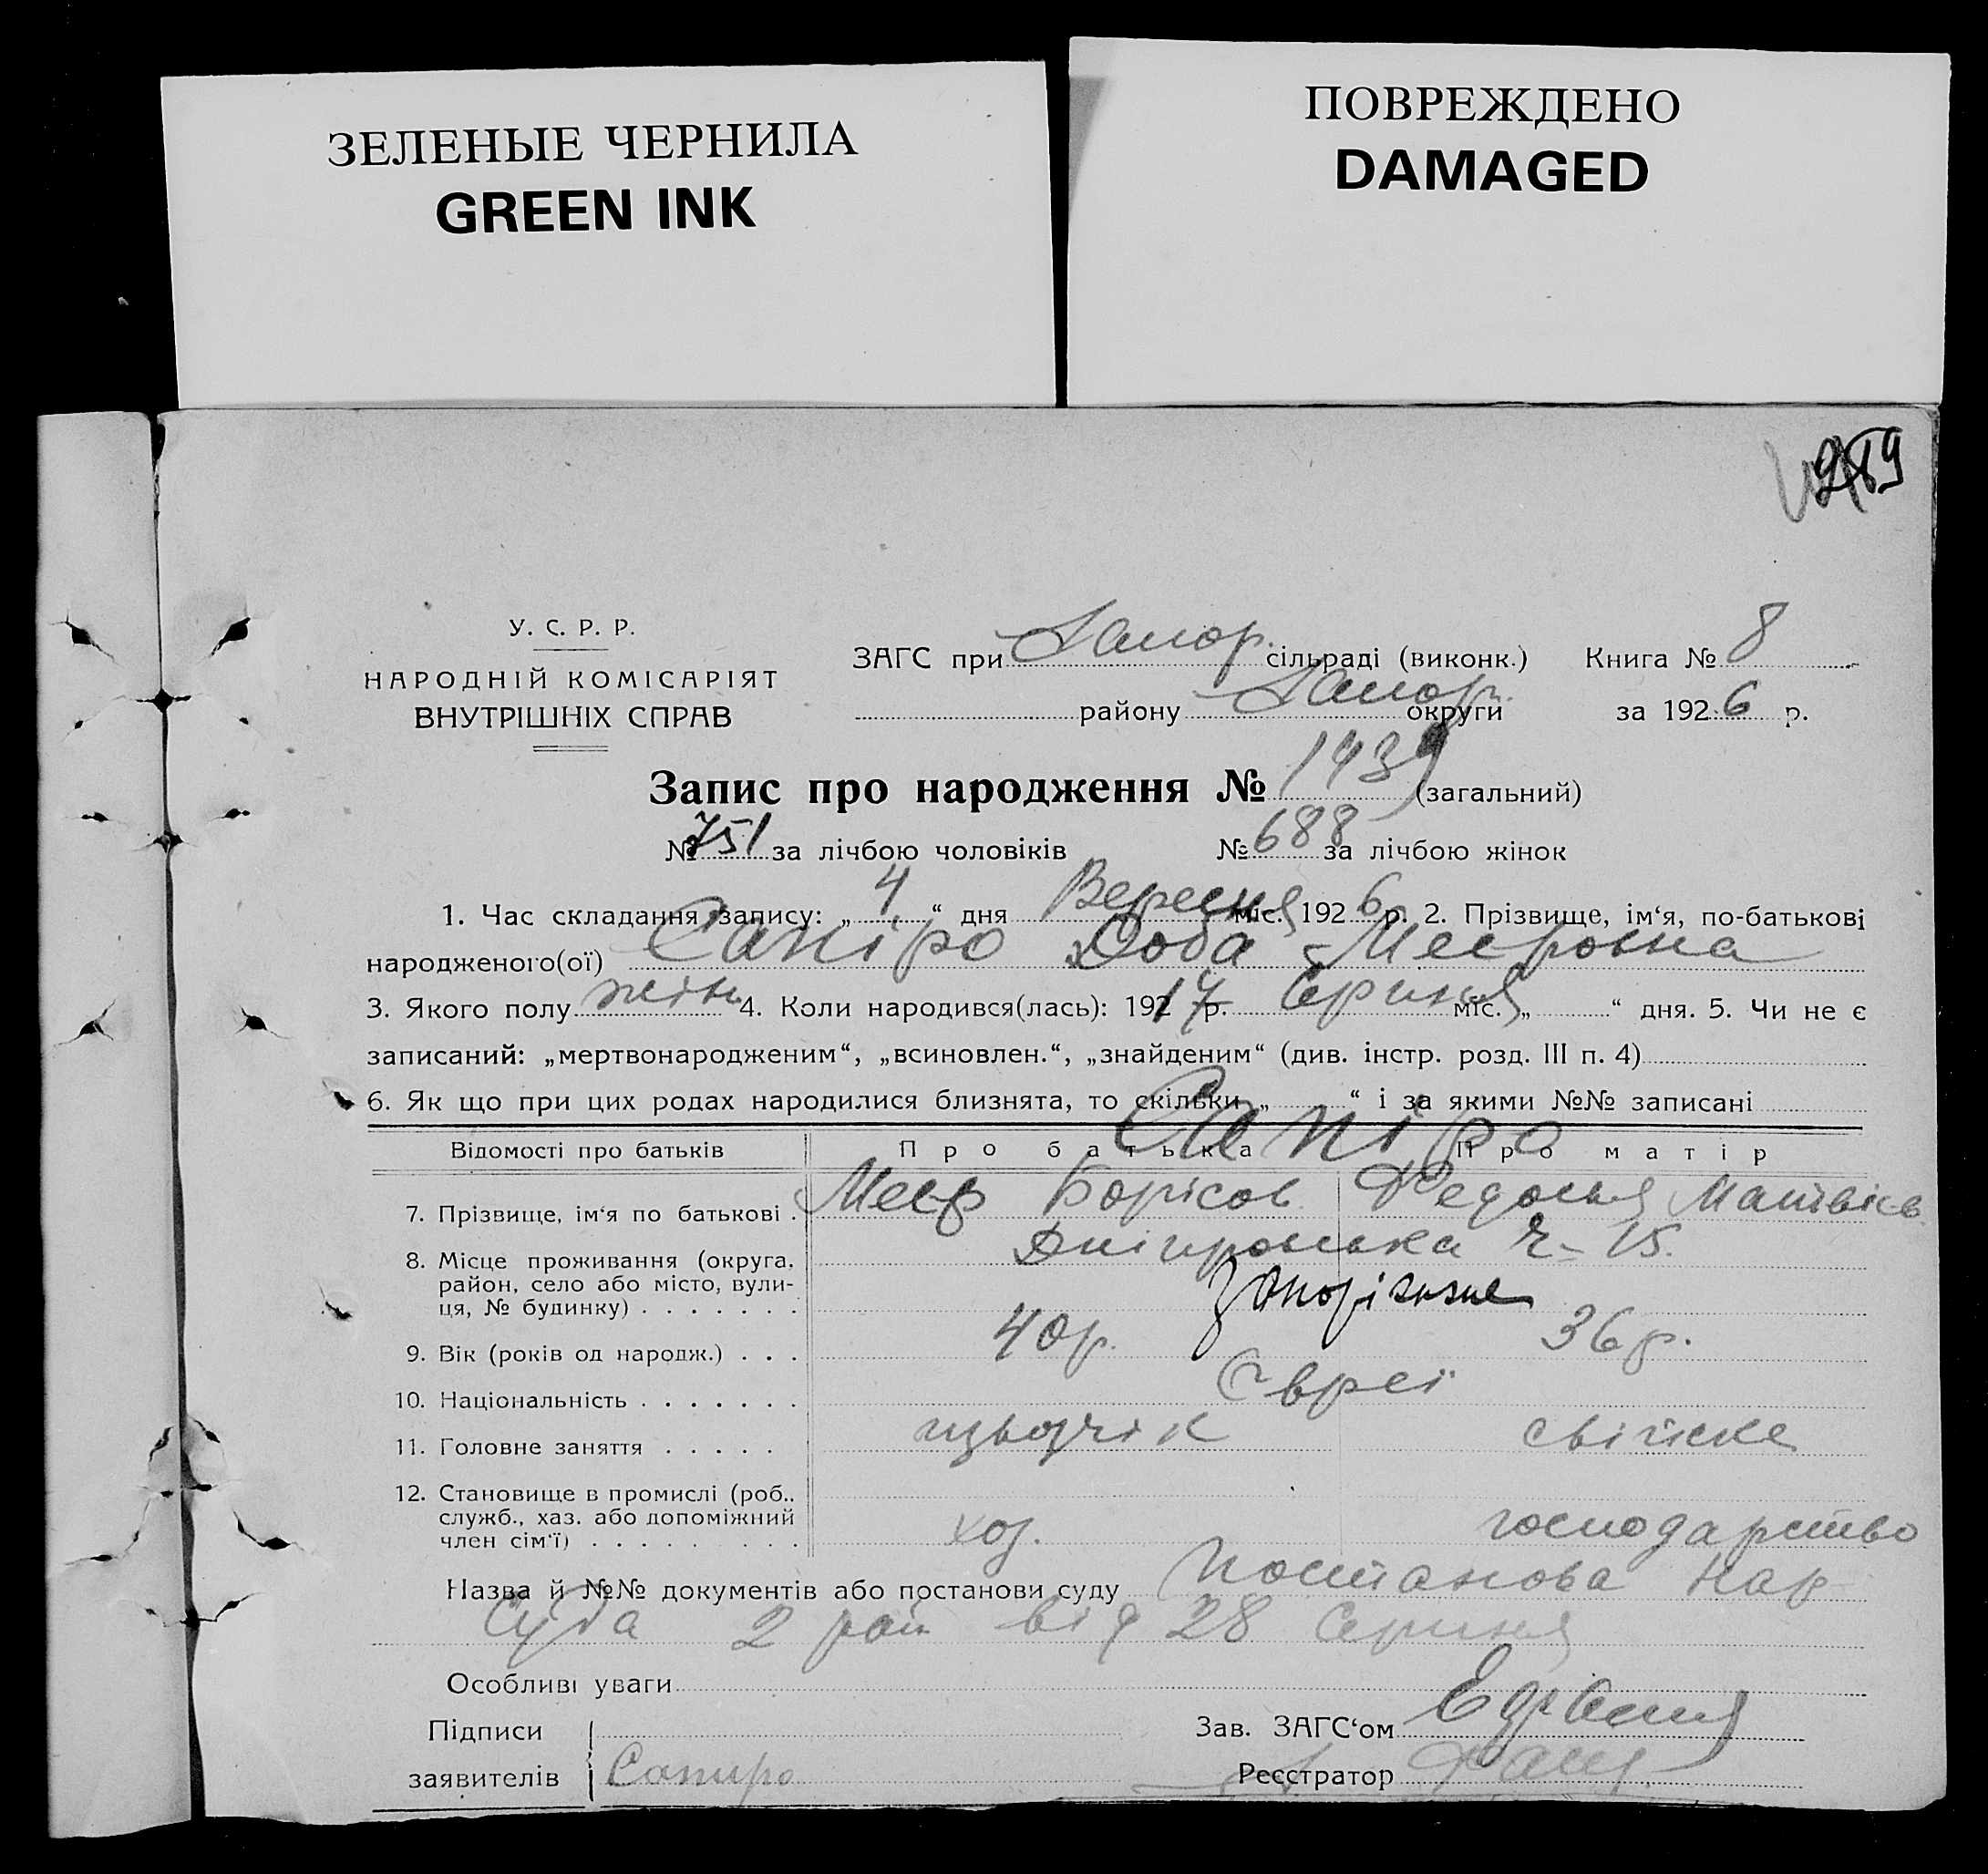 ЗЕЛЕНЫЕ ЧЕРНИЛА
GREEN INK
ПОВРЕЖДЕНО
DAMAGED
У. С. Р. Р.
НАРОДНІЙ КОМІСАРІЯТ
ВНУТРІШНІХ СПРАВ
ЗАГС при Запор. сільраді (виконк.) Книга № 8
району Запор. округи за 1926 р.
Запис про народження № 1439 (загальний)
№ 751 за лічбою чоловіків № 688 за лічбою жінок
1. Час складання запису: „ 4 “ дня Вересня міс. 1926 р. 2. Прізвище, ім‘я, по-батькові
народженого(ої) Сапіро Доба Меєровна
3. Якого полу жін. 4. Коли народився(лась): 1917 р. Серпня міс. „ “ дня. 5. Чи не є
записаний: „мертвонародженим“, „всиновлен.“, „знайденим“ (див. інстр. розд. III п. 4)
6. Як що при цих родах народилися близнята, то скільки „ “ і за якими №№ записані
Сапіро
Відомості про батьків Про батька Про матір
7. Прізвище, ім‘я по батькові . Меєр Борісов. Федосья Матвієв.
8. Місце проживання (округа, Дніпровська ч- 15.
район, село або місто, вули-
ця, № будинку) . . . . . . . Запоріжжє
9. Вік (років од народж.) . . . 40 р. 36 р.
10. Національність . . . . . . . Євреї
11. Головне заняття . . . . . свійске
12. Становище в промислі (роб..
служб., хаз. або допоміжний
член сім‘ї) . . . . . . . . . хоз. господарство
Назва й №№ документів або постанови суду Постанова Нар
Суда 2 рай від 28 Серпня
Особливі уваги
Підписи Зав. ЗАГС‘ом
заявителів Сапиро Реєстратор